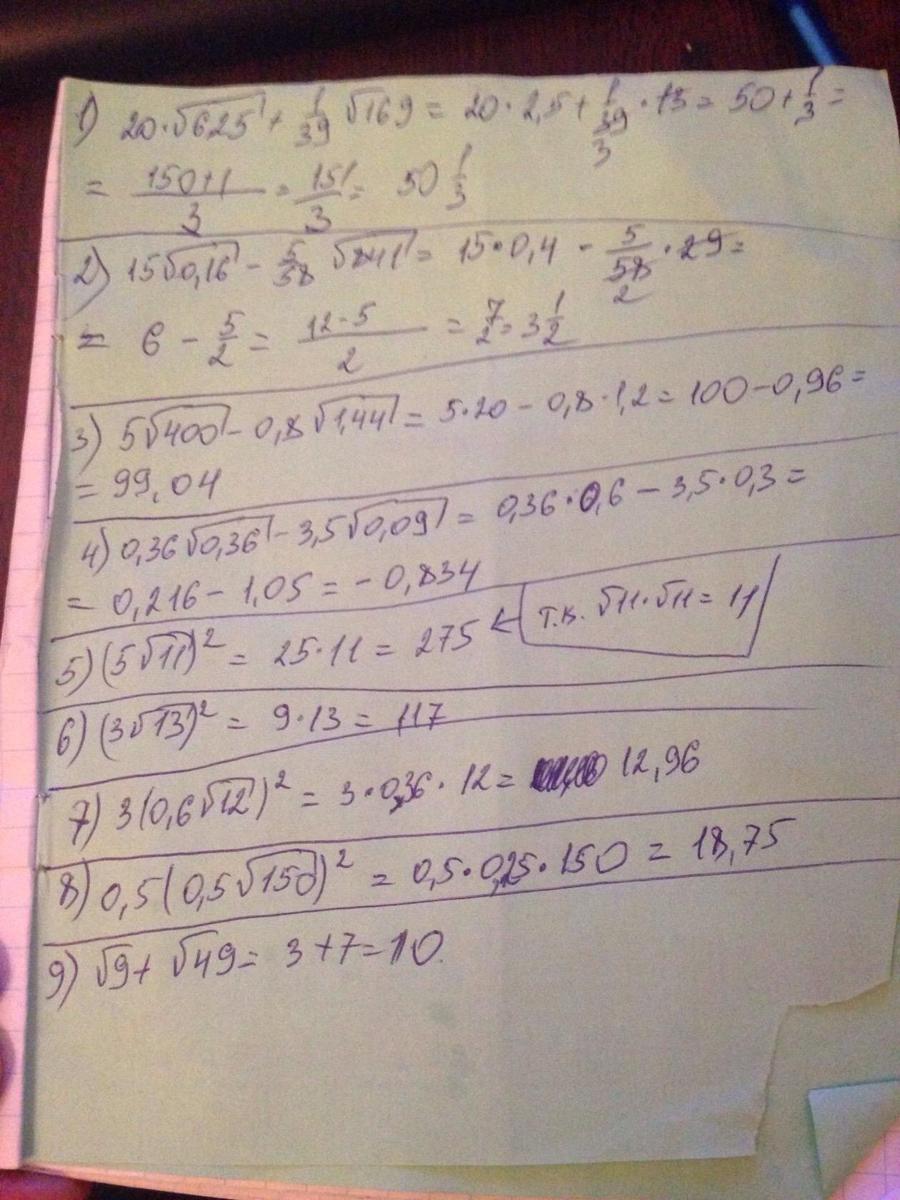 1) 20·√625 + 1/39 √169 = 20·2,5 + 1/39 3 ·13 = 50 + 1/3 =
= 150+1/3 = 151/3 = 50 1/3
2) 15√0,16 - 5/58 √841 = 15·0,4 - 5/58 2 ·29 =
= 6 - 5/2 = 12-5/2 = 7/2 = 3 1/2
3) 5√400 - 0,8√1,44 = 5·20 - 0,8·1,2 = 100 - 0,96 =
= 99,04
4) 0,36√0,36 - 3,5√0,09 = 0,36·0,6 - 3,5·0,3 =
= 0,216 - 1,05 = -0,834
5) (5√11)² = 25·11 = 275 ← т.к. √11·√11 = 11
6) (3√13)² = 9·13 = 117
7) 3(0,6√12)² = 3·0,36·12 = 12,96
8) 0,5(0,5√150)² = 0,5·0,25·150 = 18,75
9) √9 + √49 = 3+7 = 10.